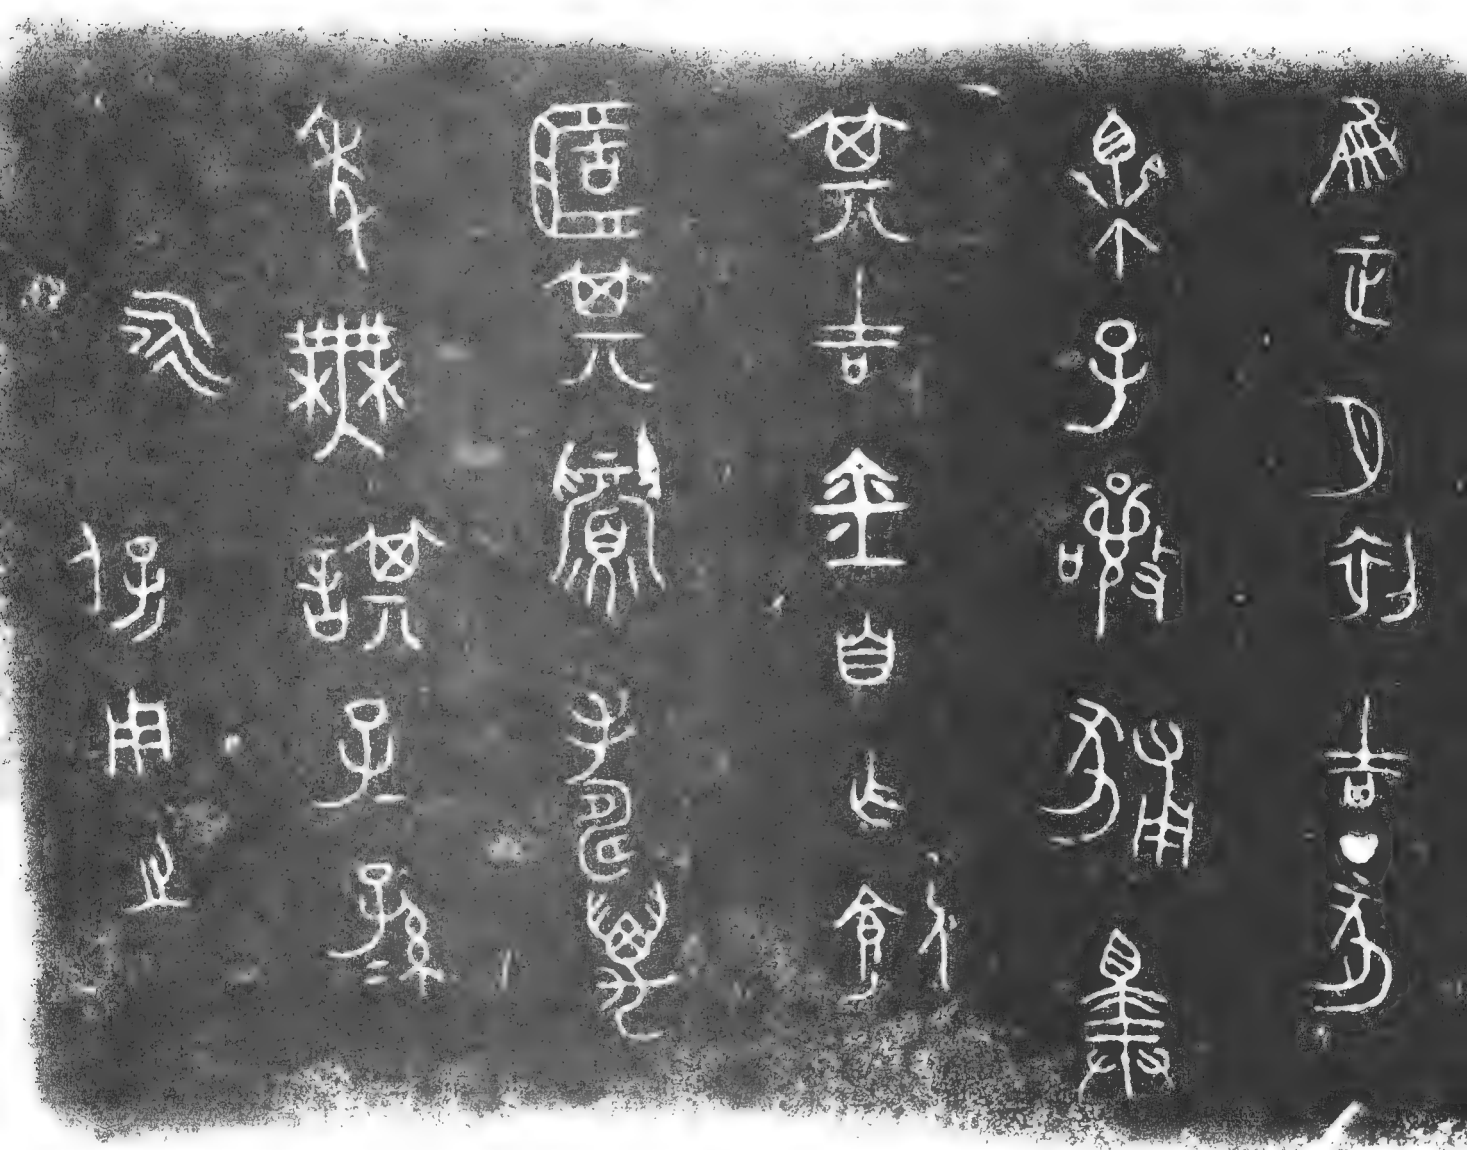 隹正月初吉丁亥
樂子嚷豧擇
其吉金自乍飤
𠤳其眉壽萬
年無諆子=孫=
永保用之